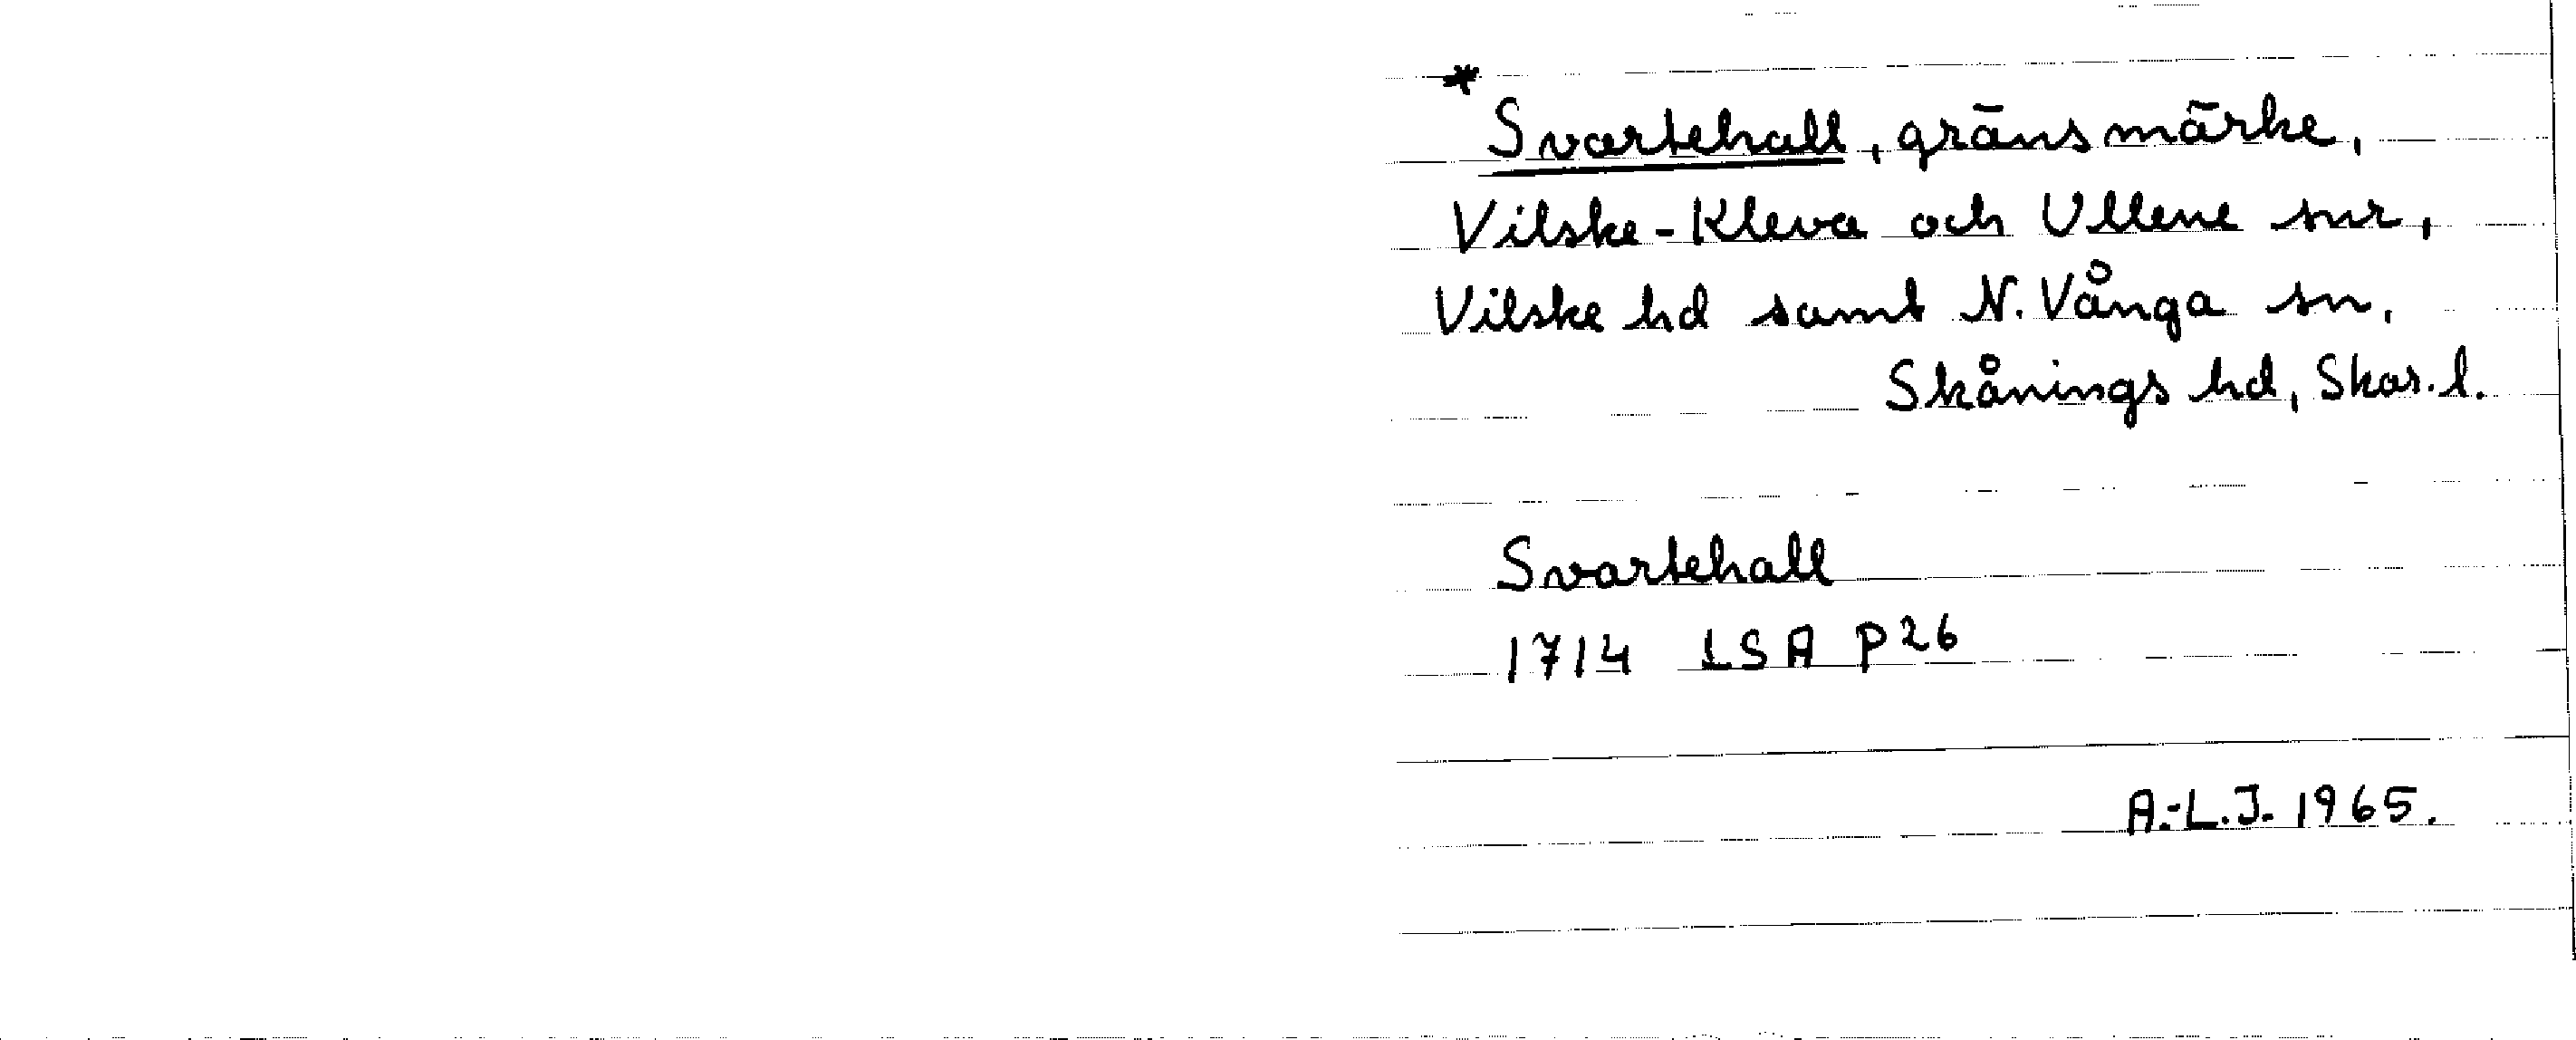 *
Svartehall, gränsmärke,
Vilske-Kleva och Ullene snr,
Vilske hd samt N. Vånga sn,
Skånings hd, Skar. l.
Svartehall
1714 LSA P26
A.-L.J. 1965.